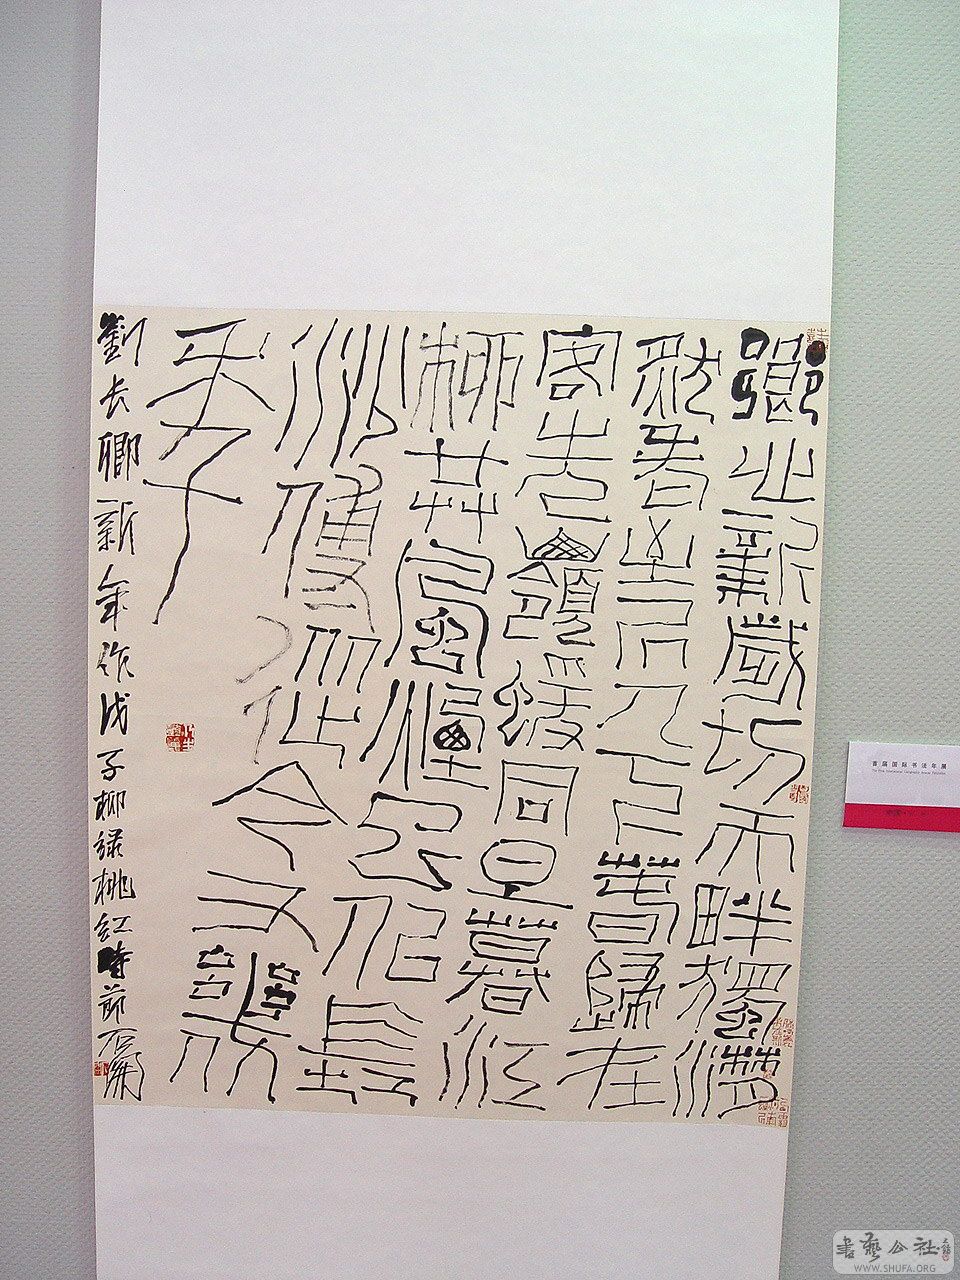 鄉心新歲切天畔獨潸
然老至居人下春歸在
客先嶺猿同旦暮江
柳共風煙已似長
沙傅從今又幾
年
劉長卿新年作戊子柳綠桃紅時節石開
首届国际书法年展
書藝公社
WWW.SHUFA.ORG